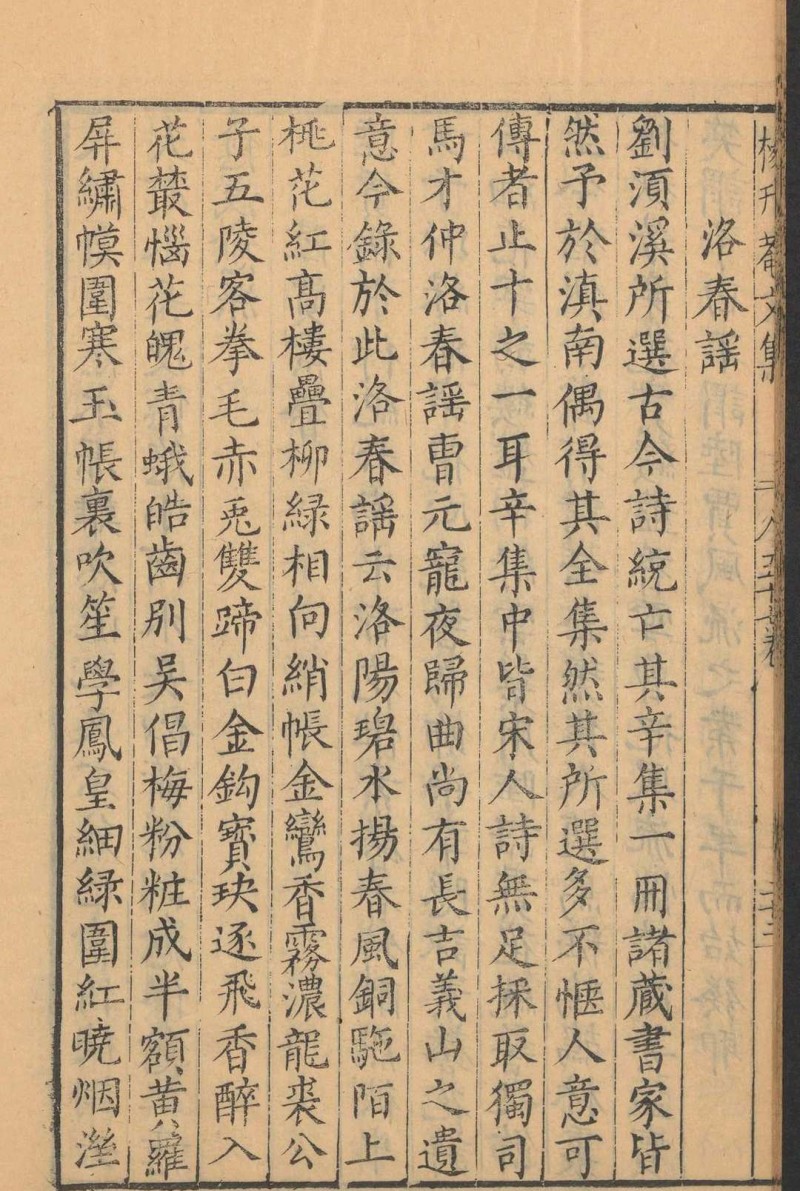 洛春謡
劉湏溪所選古今詩統亡其辛集一冊諸藏書家皆
然予於滇南偶得其全集然其所選多不愜人意可
傳者止十之一耳辛集中皆宋人詩無足採取獨司
馬才仲洛春謡曹元寵夜歸曲尚有長吉義山之遺
意今錄於此洛春謡云洛陽碧水揚春風銅駝陌上
桃花紅高樓疊柳綠相向綃帳金鸞香霧濃龍裘公
子五陵客拳毛赤兎雙蹄白金鈎寳玦逐飛香醉入
花叢惱花魄青蛾皓齒別吳倡梅粉粧成半額黄羅
屏繡幙圍寒玉帳裏吹笙學鳳皇細綠圍紅曉烟溼